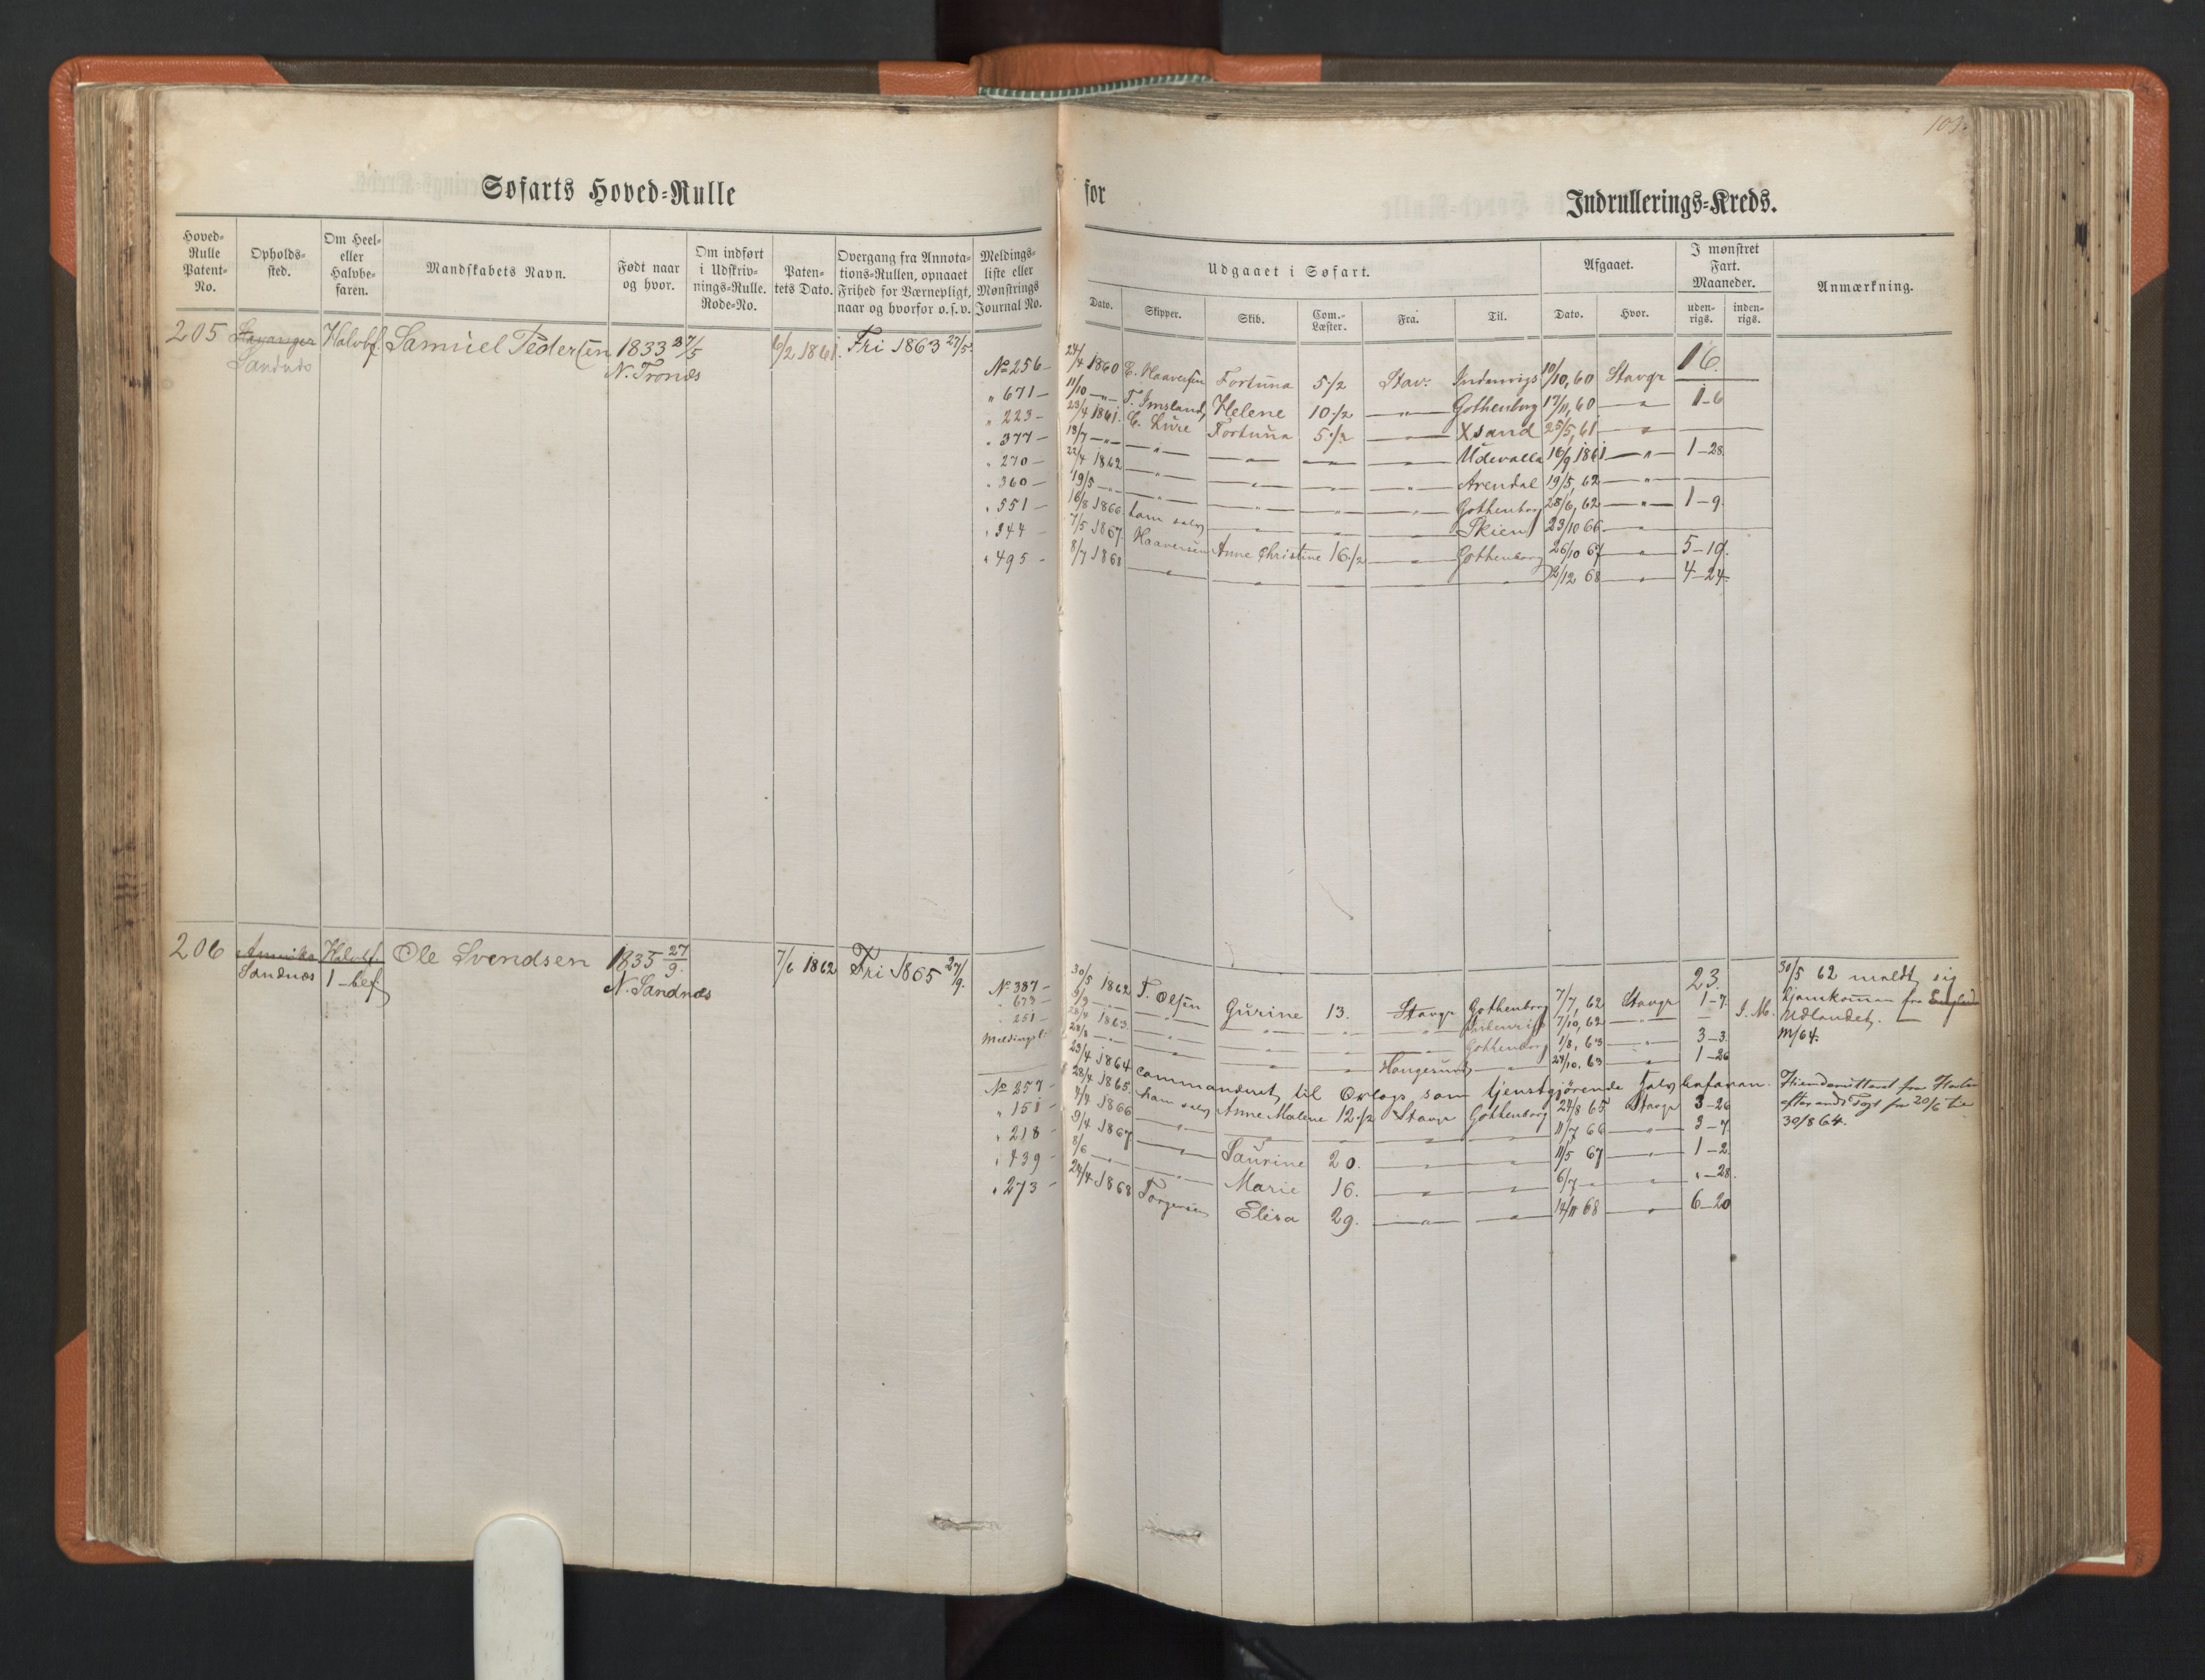 103.
Søfarts Hoved-Rulle for Indrullerings-Kreds.
Hoved-Rulle Patent-No. Opholds-sted. Om Heel- eller Halvbe-faren. Mandskabets Navn. Født naar og hvor. Om indført i Udskriv-nings-Rulle. Rode-No. Paten-tets Dato. Overgang fra Annota-tions-Rullen, opnaaet Frihed for Værnepligt, naar og hvorfor o.s.v. Meldings-liste eller Mønstrings Journal No.
Udgaaet i Søfart. Afgaaet. I mønstret Fart. Maaneder. Anmærkning.
Dato. Skipper. Skib. Com.-Læster. Fra. Til. Dato. Hvor. uden-rigs. inden-rigs.
205 Stavanger Halvbf Samuel Pedersen 1833 27/5 6/2 1861. Fri 1863 27/5
Sandnæs N. Tronæs
16.
No 256 24/4 1860 E. Haaversen Fortuna 5 1/2 Stav: Indenrigs 10/10, 60 Stavgr
" 671 11/10 " T. Imsland, Helene 10 1/2 " Gothenborg 17/11, 60 " 1-6
" 223 23/4 1861. E. Lure Fortuna 5 1/2 " Xsand 25/5, 61 "
" 377 18/7 " " " " " Udevalla 16/9 1861 " 1-28.
" 270 22/4 1862 " " " " Arendal 19/5, 62 "
" 360 19/5 " " " " " Gothenborg 28/6, 62 " 1-9.
" 551 16/8 1866. ham selv " " " Skien 23/10 66 "
" 344 7/5 1867. Haaversen Anne Christine 16 1/2 " Gothenborg 26/10 67 " 5-19.
" 495 8/7 1868 " " " " " 2/12 68 " 4-24.
206 Halvbf. Ole Svendsen 1835 27/9. 7/6 1862 Fri 1865 27/9.
Sandnæs 1-bef N. Sandnæs
23.
No 387 30/5 1862 T. Olsen Gurine 13. Stavgr Gothenborg 7/7, 62 Stavgr 1-7. S. M.
" 673 9/9 " " " " " Indenrigs 7/10, 62 "
" 251 1863. " " " " Gothenborg 1/8, 63 " 3-3.
Meldingsl. " " " " Haugesund " 24/10, 63 " 1-26
30/5 62 meldt sig
hjemkommen fra England
Udlandet.
M/64.
No 257 23/4 1864 commanderet til Orlogs som tjenstgjørende halvbefaren.
" 151 28/4 1865. ham selv Anne Malene 12 1/2 Stavgr Gothenborg 24/8 65 Stavgr 3-26
" 218 4/4 1866 " " " " " 11/7 66 " 3-7.
9/4 1867 " Saurine 20. " " 11/5 67 " 1-2
" 439 8/6 " " Marie 16. " " 6/7 " " "-28.
" 273 24/4 1868 Torgersen Elisa 29. " " 14/11 68 " 6-20
Hjemdemitteret fra Horten
efter endt Togt fra 20/6 til
30/8 64.